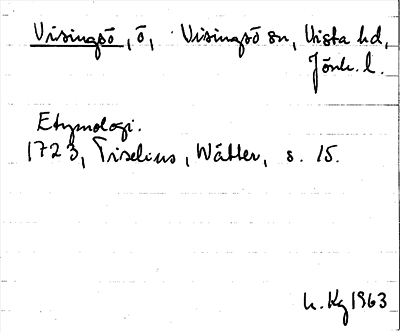 Visingsö, ö, Visingsö sn, Vista hd,
Jönk. l.
Etymologi.
1723, Tiselius, Wätter, s. 15.
h. Kg 1963